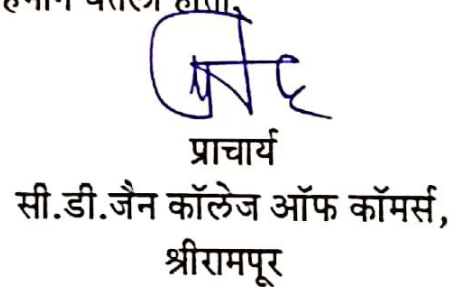 घेतला होता.
प्राचार्य
सी.डी.जैन कॉलेज ऑफ कॉमर्स,
श्रीरामपूर